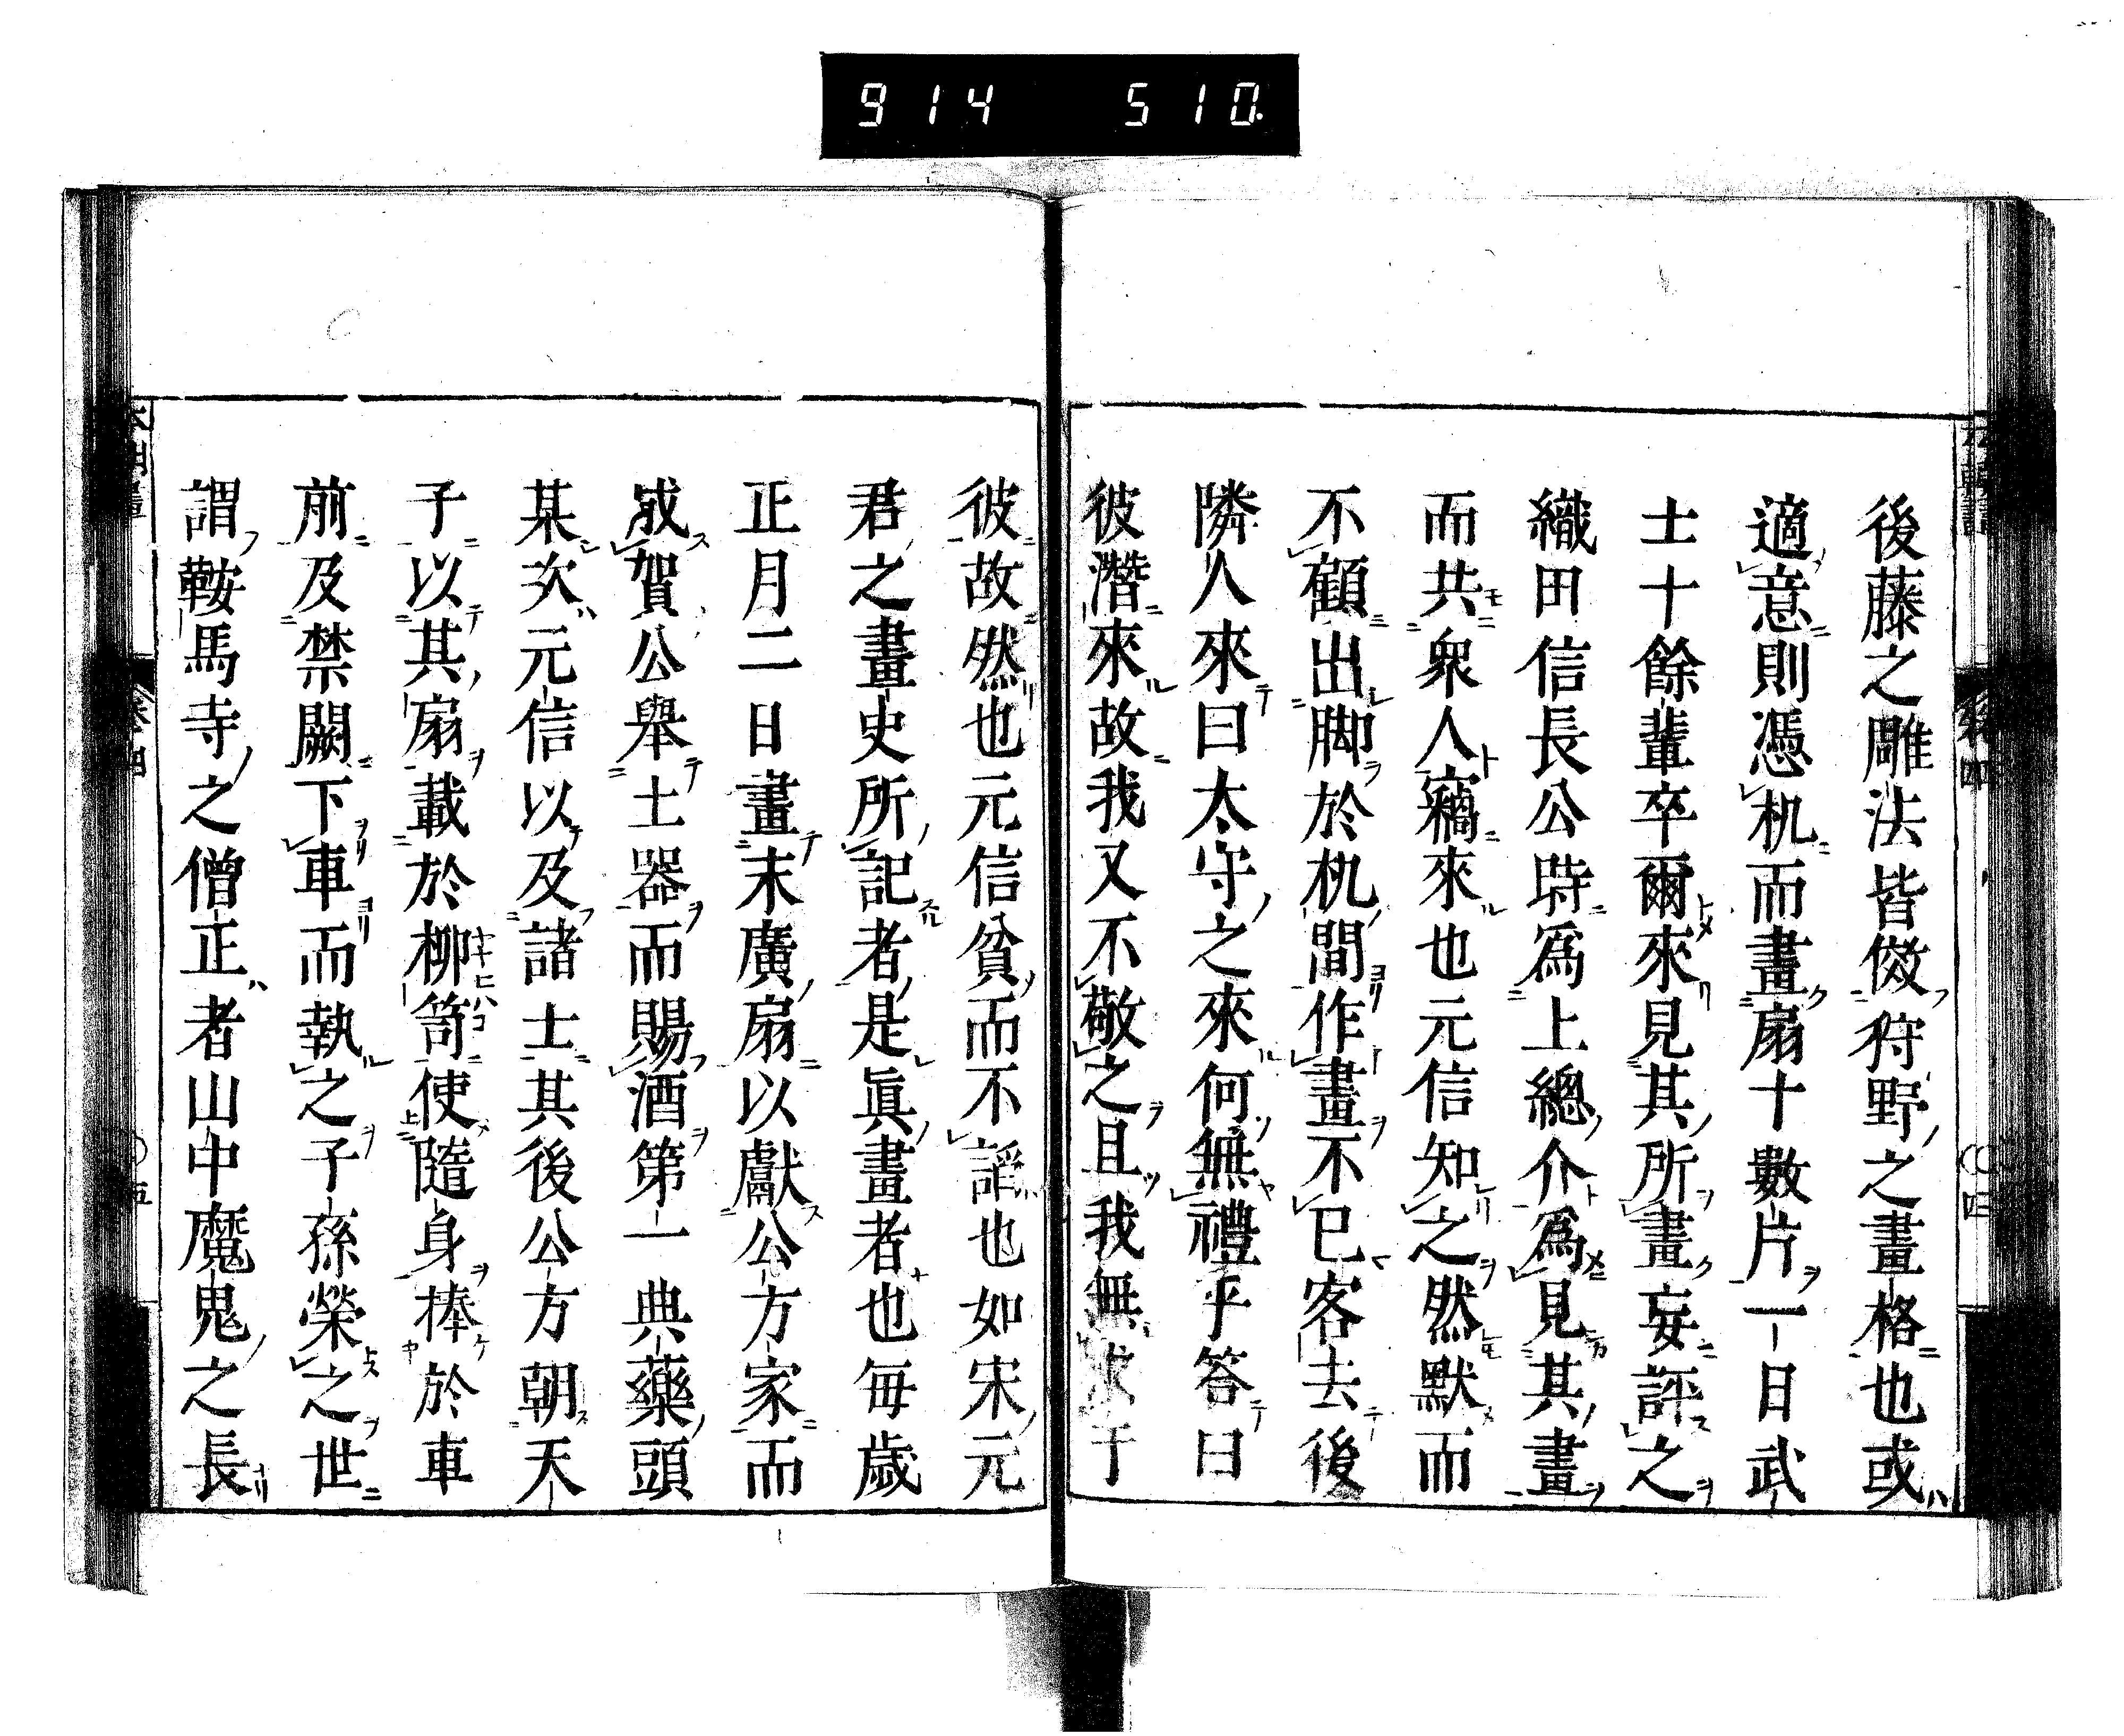 914 510.
後藤之雕法皆倣狩野之畫格也或
適意則憑机而畫扇十數片一日武
士十餘輩卒爾來見其所畫妄評之
織田信長公時爲上總介爲見其畫
而共衆人竊來也元信知之然默而
不顧出脚於机間作畫不已客去後
隣人來曰太守之來何無禮乎答曰
彼潛來故我又不敬之且我無求于
彼故然也元信貧而不謟也如宋元
君之畫史所記者是眞畫者也毎歳
正月二日畫末廣扇以獻公方家而
成賀公舉土器而賜酒第一典藥頭
某次元信以及諸士其後公方朝天
子以其扇載於柳笥使隨身捧於車
前及禁闕下車而執之子孫榮之世
謂鞍馬寺之僧正者山中魔鬼之長